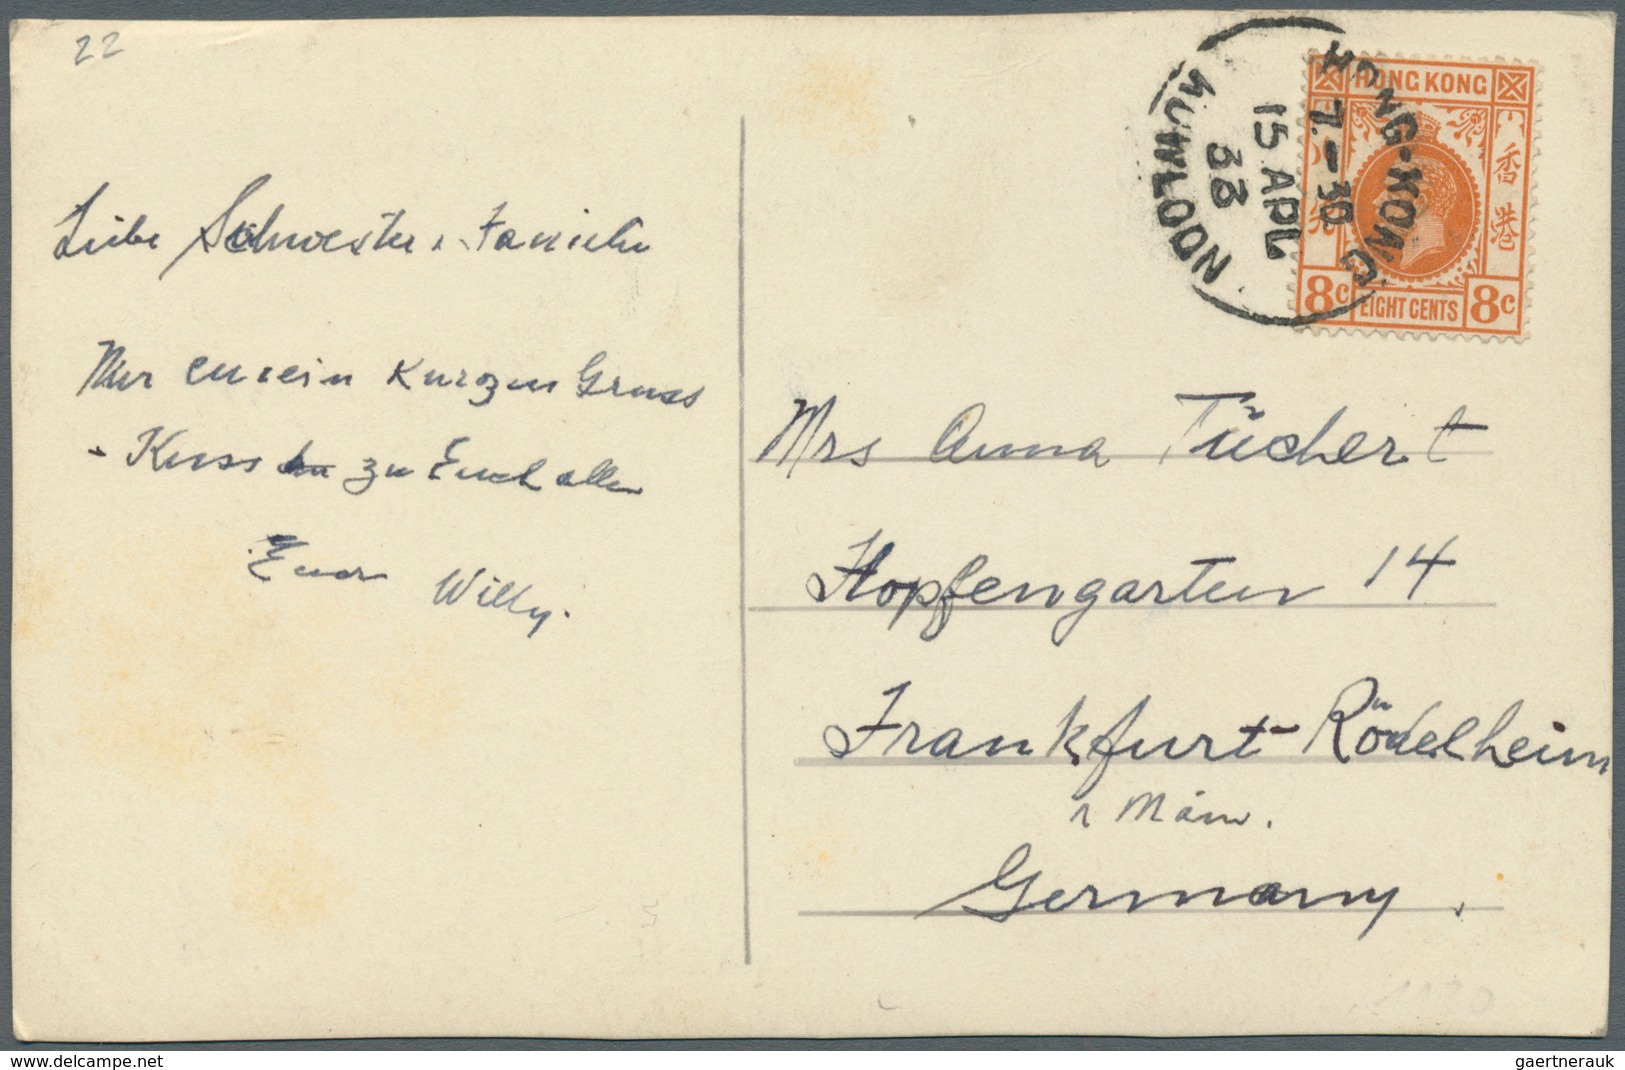 22
Liebe Schwester u. Familie
Nur einen kurzen Gruss
u. Kuss zu Euch allen
Euer Willy.
KOWLOON
33
15 APL
7.-30
HONG-KONG
HONG KONG
香港
8c EIGHT CENTS 8c
Mrs Anna Tüchert
Hopfengarten 14
Frankfurt-Rödelheim
a Main.
Germany.
1120
delcampe.net
gaertnerauk